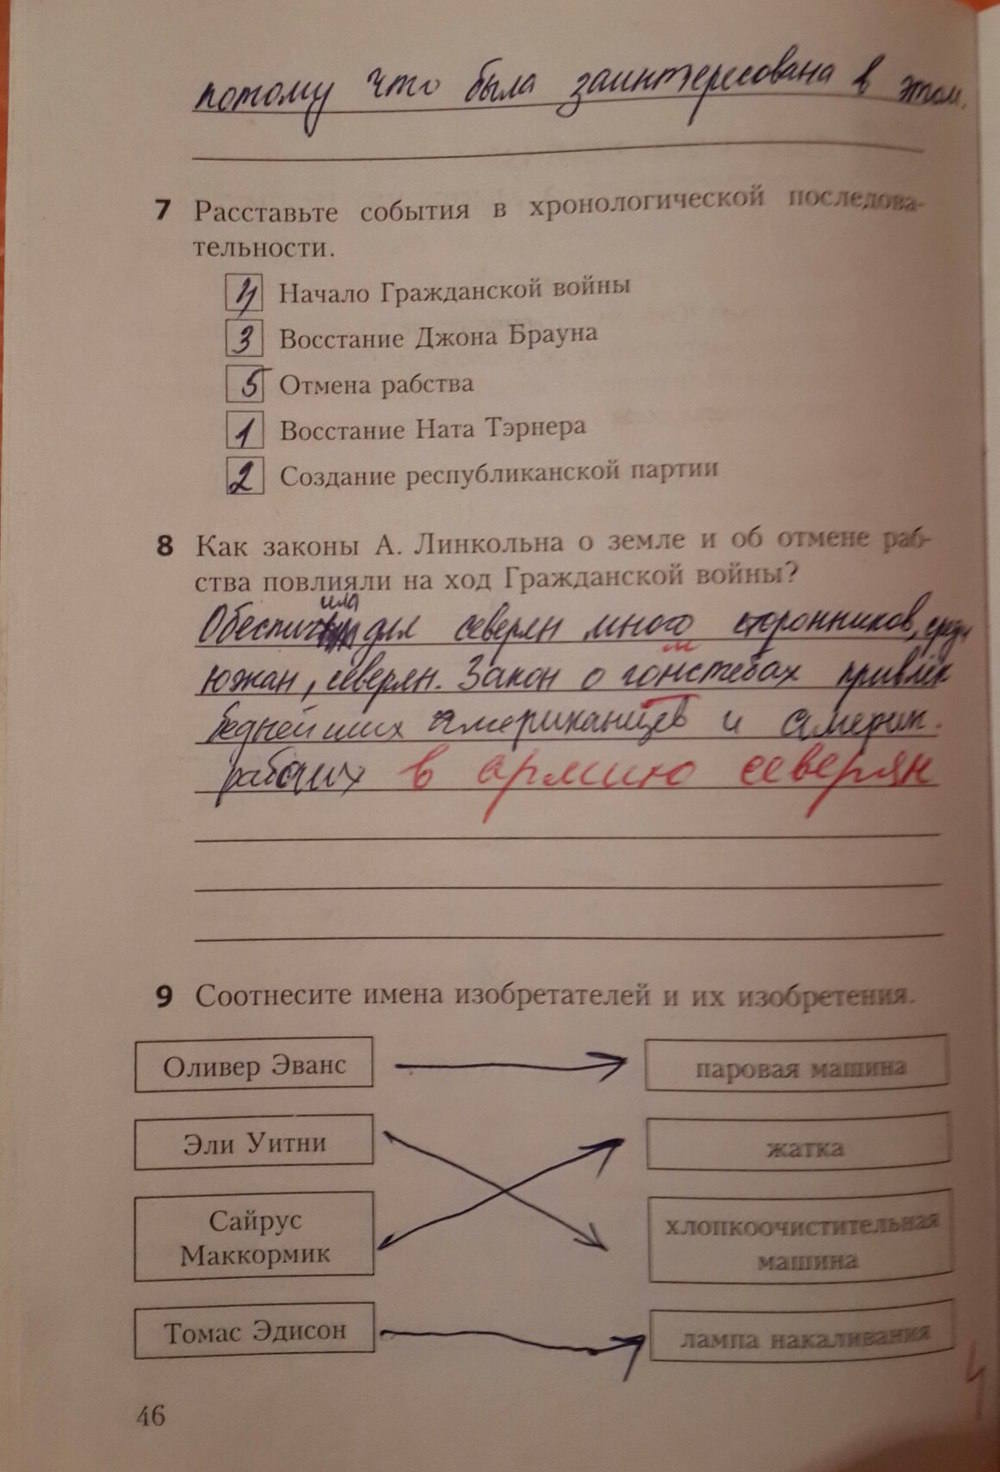 потому что была заинтересована в этом.
7 Расставьте события в хронологической последова-
тельности.
4 Начало Гражданской войны
3 Восстание Джона Брауна
5 Отмена рабства
1 Восстание Ната Тэрнера
2 Создание республиканской партии
8 Как законы А. Линкольна о земле и об отмене раб-
ства повлияли на ход Гражданской войны?
ила
Обеспеч для северян много сторонников, среди
южан, северян. Закон о гомстедах привлёк
беднейших американцев и америк.
рабочих в армию северян
9 Соотнесите имена изобретателей и их изобретения.
Оливер Эванс паровая машина
Эли Уитни жатка
Сайрус
Маккормик
хлопкоочистительная
машина
Томас Эдисон лампа накаливания
46
4